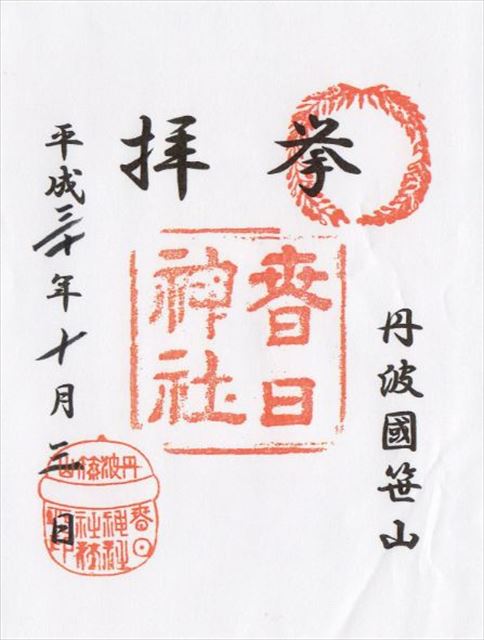 丹波國笹山
挙拝
春日
神社
平成三十年十月三日
丹波篠山
春日
神社